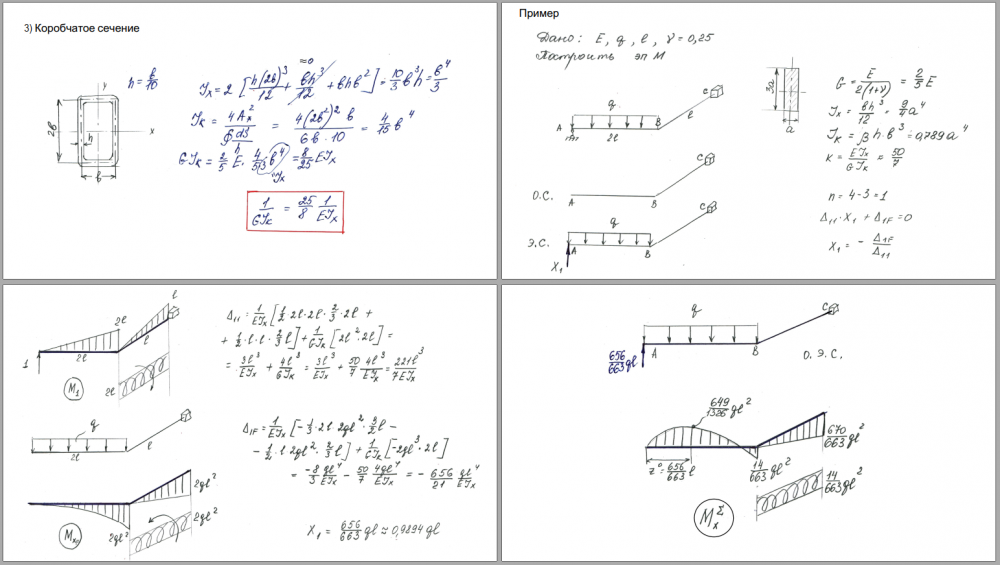 3) Коробчатое сечение
h = b/10
y
x
2b
h
b
≈0
Jx = 2 [ h(2b)³/12 + bh³/12 + bhb² ] = 10/3 b³h = b⁴/3
Jк = 4Ax²/∮ds/h = 4(2b²)² b/6b·10 = 4/15 b⁴
GJк = 2/5 E · 4/5·3 b⁴ = 8/25 EJx
Jx
1/GJк = 25/8 1/EJx
Пример
Дано: E, q, l, γ = 0,25
Построить эп M
q
A
B
C
2l
l
3a
a
G = E/2(1+γ) = 2/5 E
Jx = bh³/12 = 9/4 a⁴
Jк = βhb³ = 0,789a⁴
к = EJx/GJк ≈ 50/7
О.С.
A
B
C
n = 4-3 = 1
Δ11·X1 + Δ1F = 0
X1 = - Δ1F/Δ11
Э.С.
q
A
B
C
X1
1
2l
2l
l
l
2l
M1
Δ11 = 1/EJx [ 1/2 2l·2l·2/3·2l +
+ 1/2·l·l·2/3 l ] + 1/GJк [ 2l²·2l ] =
= 3l³/EJx + 4l³/GJк = 3l³/EJx + 50/7 4l³/EJx = 221l³/7EJx
q
2l
l
2ql²
2ql²
2ql²
Mx₀
Δ1F = 1/EJx [ -1/3·2l 2ql²·3/2 l -
- 1/2·l 2ql²·2/3 l ] + 1/GJк [ -2ql³·2l ]
= -8/3 ql⁴/EJx - 50/7 4ql⁴/EJx = - 656/21 ql⁴/EJx
X1 = 656/663 ql ≈ 0,9894 ql
q
C
656/663 ql
A
B
О.Э.С.
649/1326 ql²
670/663 ql²
z⁰ = 656/663 l
14/663 ql²
14/663 ql²
MxΣ